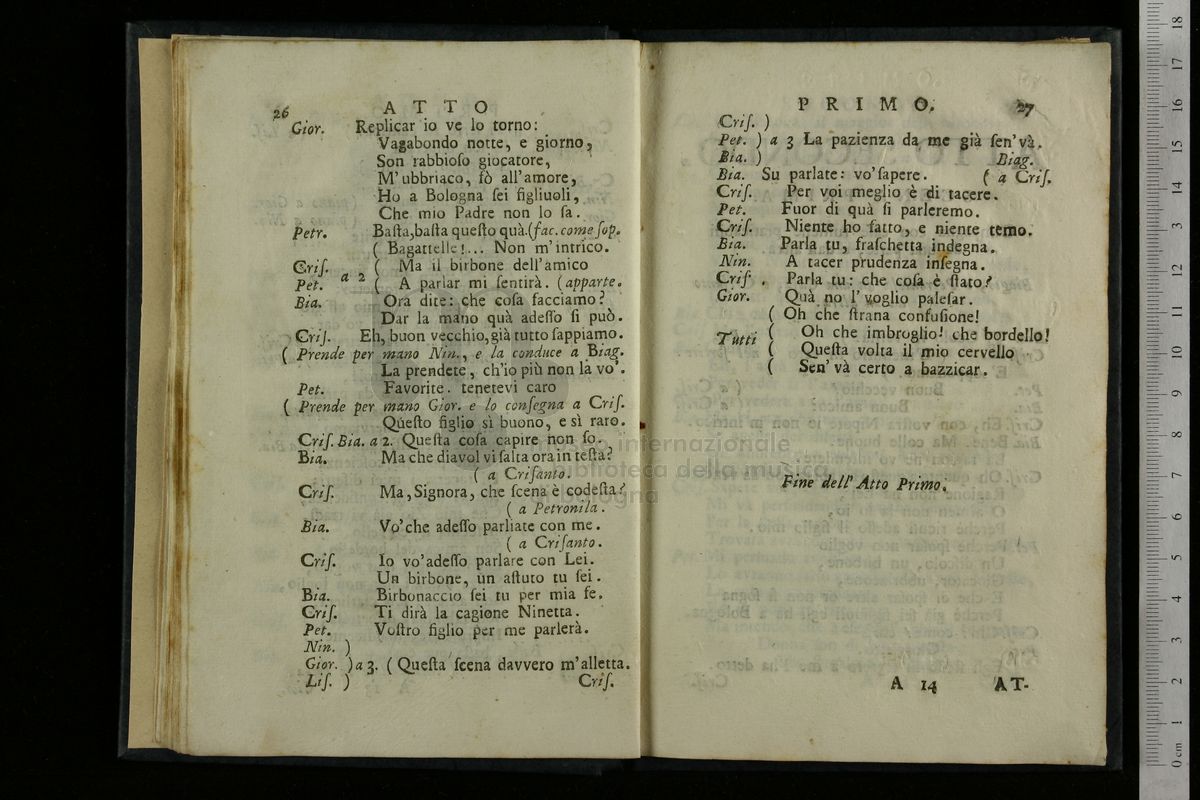 26 ATTO
Gior. Replicar io ve lo torno:
Vagabondo notte, e giorno,
Son rabbioſo giocatore,
M'ubbriaco, fò all'amore,
Ho a Bologna ſei figliuoli,
Che mio Padre non lo ſa.
Petr. Baſta,baſta queſto quà.(fac. come ſop.
( Bagattelle!... Non m'intrico.
Criſ. ( Ma il birbone dell'amico
Pet. a 2 ( A parlar mi ſentirà. (apparte.
Bia. Ora dite: che coſa facciamo?
Dar la mano quà adeſſo ſi può.
Criſ. Eh, buon vecchio, già tutto ſappiamo.
( Prende per mano Nin., e la conduce a Biag.
La prendete, ch'io più non la vo'.
Pet. Favorite. tenetevi caro
( Prende per mano Gior. e lo conſegna a Criſ.
Queſto figlio sì buono, e sì raro.
Criſ. Bia. a 2. Queſta coſa capire non ſo.
Bia. Ma che diavol vi ſalta ora in teſta?
( a Criſanto.
Criſ. Ma, Signora, che ſcena è codeſta?
( a Petronila.
Bia. Vo'che adeſſo parliate con me.
( a Criſanto.
Criſ. Io vo'adeſſo parlare con Lei.
Un birbone, un aſtuto tu ſei.
Bia. Birbonaccio ſei tu per mia fe.
Criſ. Ti dirà la cagione Ninetta.
Pet. Voſtro figlio per me parlerà.
Nin. )
Gior. ) a 3. ( Queſta ſcena davvero m'alletta.
Liſ. ) Criſ.
PRIMO. 27
Criſ. )
Pet. ) a 3 La pazienza da me già ſen'và.
Bia. ) Biag.
Bia. Su parlate: vo'ſapere. ( a Criſ.
Criſ. Per voi meglio è di tacere.
Pet. Fuor di quà ſi parleremo.
Criſ. Niente ho fatto, e niente temo.
Bia. Parla tu, fraſchetta indegna.
Nin. A tacer prudenza inſegna.
Criſ. Parla tu: che coſa è ſtato?
Gior. Quà no l'voglio paleſar.
( Oh che ſtrana confuſione!
Tutti ( Oh che imbroglio! che bordello!
( Queſta volta il mio cervello
( Sen' và certo a bazzicar.
Fine dell' Atto Primo.
A 14 AT-
museo internazionale
biblioteca della musica
bologna
0 cm 1 2 3 4 5 6 7 8 9 10 11 12 13 14 15 16 17 18